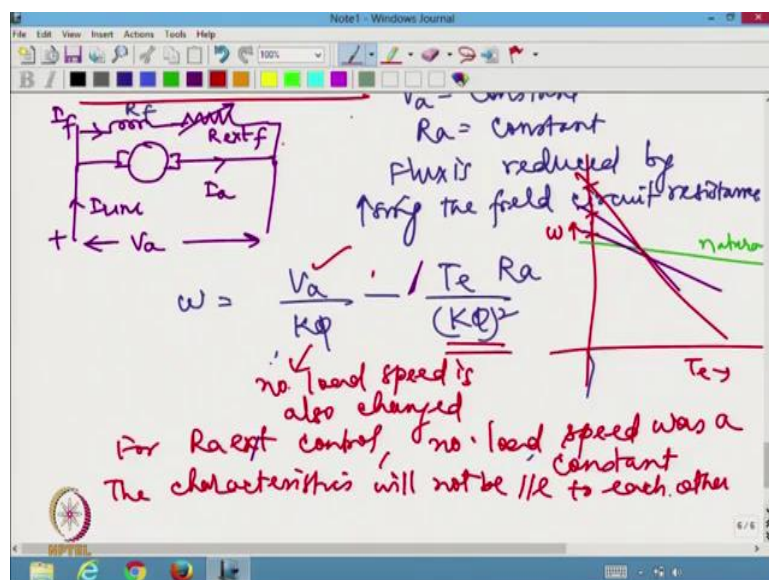 Note1 - Windows Journal
File Edit View Insert Actions Tools Help
100%
B I
Va = Constant
If Rf Rext f
Ra = Constant
Ia
Flux is reduced by
↑sing the field circuit resistance
Iline
+ ← Va →
ω ↑
natura
ω = Va / Kφ - Te Ra / (Kφ)²
Te →
no. load speed is
also changed
For Ra ext control, no. load speed was a
constant
The characteristics will not be //l to each other
6/6
NPTEL